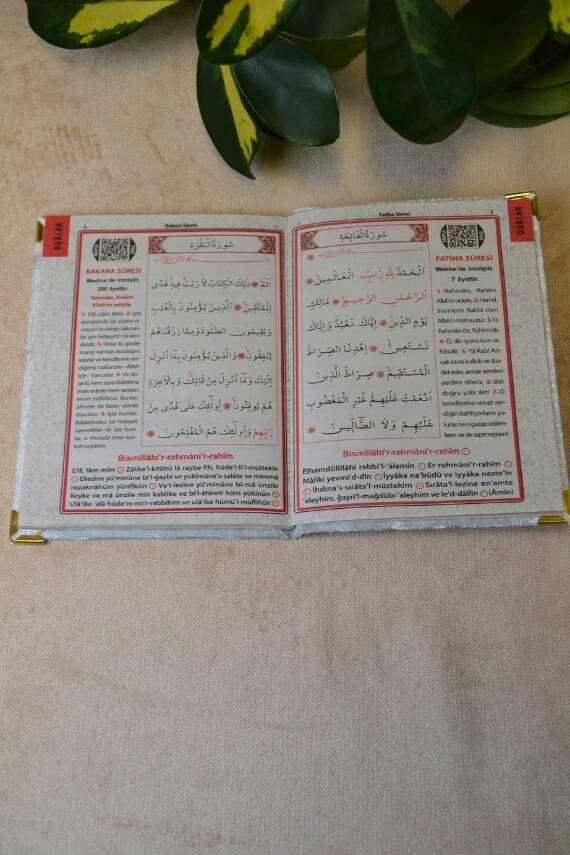 2
Fatiha Sûresi
DUÂLAR
سُورَةُ الْفَاتِحَةِ
اَلْحَمْدُ لِلّٰهِ رَبِّ الْعَالَمِينَ
اَلرَّحْمٰنِ الرَّحِيمِ مَالِكِ
يَوْمِ الدِّينِ اِيَّاكَ نَعْبُدُ وَاِيَّاكَ
نَسْتَعِينُ اِهْدِنَا الصِّرَاطَ
الْمُسْتَقِيمَ صِرَاطَ الَّذِينَ
اَنْعَمْتَ عَلَيْهِمْ غَيْرِ الْمَغْضُوبِ
عَلَيْهِمْ وَلَا الضَّالِّينَ
FATİHA SÛRESİ
Mekke'de inmiştir.
7 âyettir.
1- Rahmân, Rahîm
Allah'ın adıyla, 2- Hamd,
âlemlerin Rabbi olan
Allah'a mahsustur. 3- O,
Rahmân'dır, Rahîm'dir.
4- O, din gününün sa-
hibidir. 5- Yâ Rabi! An-
cak sana kulluk ve iba-
det eder, ancak senden
yardım dileriz. 6- Bizi
doğru yola ilet! 7- O
kendilerine nimet ver-
diğin bahtiyarların yo-
luna; ne o gazap edilen-
lerin ne de sapıtmışların!
Bismillâhi'r-rahmâni'r-rahîm
Elhamdülillâhi rabbi'l-'âlemîn Er-rahmâni'r-rahîm
Mâliki yevmi'd-dîn İyyâke na'büdü ve iyyâke neste'în
İhdina's-sırâta'l-müstekîm Sırâta'l-lezîne en'amte
'aleyhim, ğayri'l-mağdûbi 'aleyhim ve le'd-dâllîn (Âmin)
3
Bakara Sûresi
DUÂLAR
BAKARA SÛRESİ
Medine'de inmiştir.
286 âyettir.
Rahmân, Rahîm
Allah'ın adıyla.
1- Elif, Lâm, Mîm. 2- İşte
kendisinde bir şüphe ol-
mayan bu kitap; sakınan-
lar için hidayetin tâ ken-
disidir. 3- Onlar ki, gaybe
inanıp namazı dosdoğru
kılarlar ve kendilerine ver-
diğimiz rızıklardan - Allah
için- harcarlar. 4- Ve on-
lar ki, hem sana indirilene
iman ederler hem senden
evvel indirilene. Bunlar,
ahirete de kesin olarak
inanırlar. 5- İşte bunlar,
Rablerinden bir hidayet
üzeredirler ve işte bun-
lar, o murada eren kur-
tulmuşlardır.
سُورَةُ الْبَقَرَةِ
الٓمٓ ذٰلِكَ الْكِتَابُ لَا رَيْبَ فِيهِ هُدًى
لِلْمُتَّقِينَ اَلَّذِينَ يُؤْمِنُونَ بِالْغَيْبِ
وَيُقِيمُونَ الصَّلٰوةَ وَمِمَّا رَزَقْنَاهُمْ
يُنْفِقُونَ وَالَّذِينَ يُؤْمِنُونَ بِمَا اُنْزِلَ
اِلَيْكَ وَمَا اُنْزِلَ مِنْ قَبْلِكَ وَبِالْاٰخِرَةِ
هُمْ يُوقِنُونَ اُولٰئِكَ عَلٰى هُدًى مِنْ
رَبِّهِمْ وَاُولٰئِكَ هُمُ الْمُفْلِحُونَ
Bismillâhi'r-rahmâni'r-rahîm
Elif, lâm-mîm Zâlike'l-kitâbü lâ raybe fîh, hüde'l-li'l-müttekîn
Ellezîne yü'minûne bi'l-ğaybi ve yukîmûne's-salâte ve mimmâ
rezaknâhüm yünfikûn Ve'l-lezîne yü'minûne bi-mâ ünzile
ileyke ve mâ ünzile min kablike ve bi'l-âhireti hüm yûkınûn
Ulâ'ike 'alâ hüde'm-mi'r-rabbihim ve ulâ'ike hümü'l-müflihûn